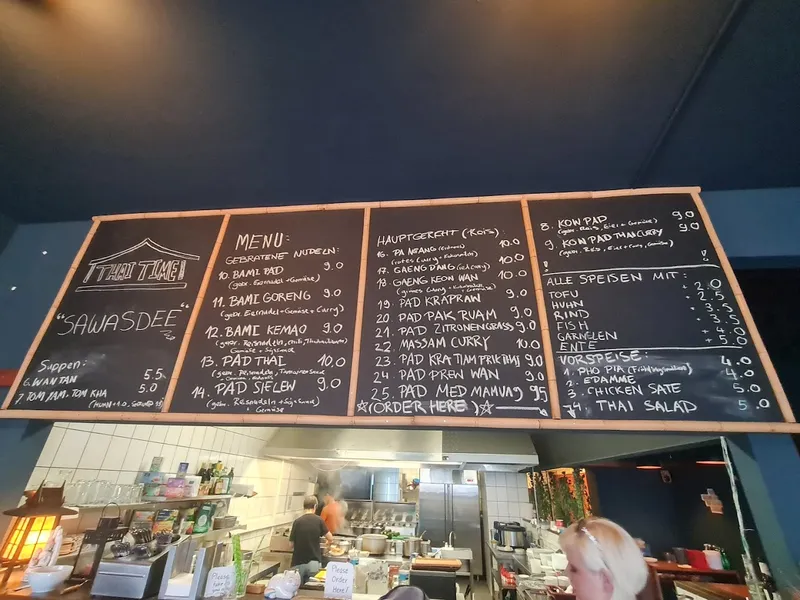 THAI TIME!
"SAWASDEE"
Suppen:
6. WAN TAN 5.5
7. TOM YAM. TOM KHA 5.0
MENU:
GEBRATENE NUDELN:
10. BAMI PAD 9.0
(gebr. Eiernudel + Gemüse)
11. BAMI GORENG 9.0
(gebr. Eiernudel + Gemüse + Curry)
12. BAMI KEMAO 9.0
13. PAD THAI 10.0
14. PAD SIEIEW 9.0
+ Gemüse
HAUPTGERICHT (Reis):
16. PANAENG (Erdnuss) 10.0
17. GAENG DANG 10.0
18. GAENG KEOW WAN 10.0
19. PAD KRAPRAW 9.0
20. PAD PAK RUAM 9.0
21. PAD ZITRONENGRASS 9.0
22. MASSAM CURRY 10.0
23. PAD KRA TIAM PRIK THAI 9.0
24. PAD PREW WAN 9.0
25. PAD MED MAHUNG 9.5
(ORDER HERE)
8. KOW PAD 9.0
(gebr. Reis, Eier + Gemüse)
9. KOW PAD THAI CURRY 9.0
(gebr. Reis, Eier + Curry, Gemüse)
ALLE SPEISEN MIT:
TOFU + 2.0
HUHN + 2.5
RIND + 3.5
FISH + 3.5
GARNELEN + 4.0
ENTE + 5.0
VORSPEISE:
1. PHO PIA (Frühlingsrollen) 4.0
2. EDAMME 4.0
3. CHICKEN SATE 5.0
4. THAI SALAD 5.0
Please
Please
Order
Here!